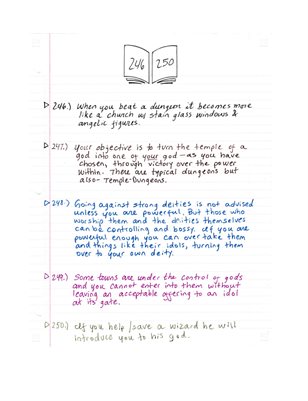 246 250
▷ 246.) When you beat a dungeon it becomes more
like a church w/ stain glass windows &
angelic figures.
▷ 247.) Your objective is to turn the temple of a
god into one of your god - as you have
chosen, through victory over the power
within. There are typical dungeons but
also - Temple-Dungeons.
▷ 248.) Going against strong deities is not advised
unless you are powerful. But those who
worship them and the deities themselves
can be controlling and bossy. If you are
powerful enough you can over take them
and things like their idols, turning them
over to your own deity.
▷ 249.) Some towns are under the control of gods
and you cannot enter into them without
leaving an acceptable offering to an idol
at its gate.
▷ 250.) If you help/save a wizard he will
introduce you to his god.